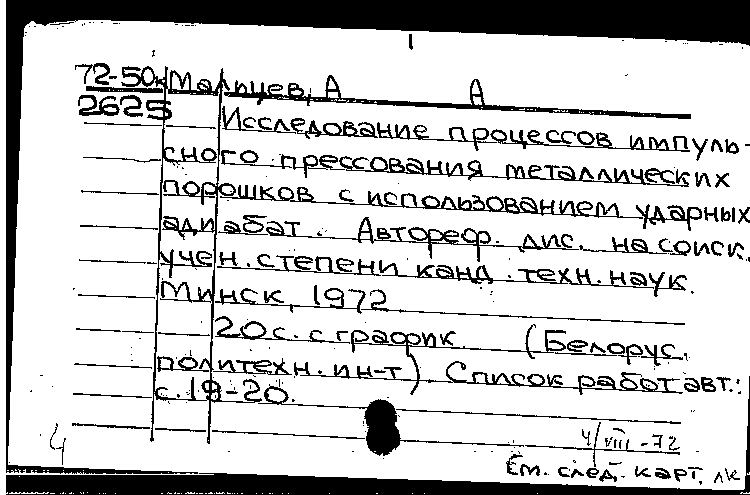 72-50к Мальцев, А А
2625
Исследование процессов импуль-
сного прессования металлических
порошков с использованием ударных
адиабат. Автореф. дис. на соиск.
учен. степени канд. техн. наук.
Минск, 1972
20 с. с график. (Белорус.
политехн. ин-т). Список работ авт.:
с. 19-20.
4/VIII-72
4
См. след. карт.